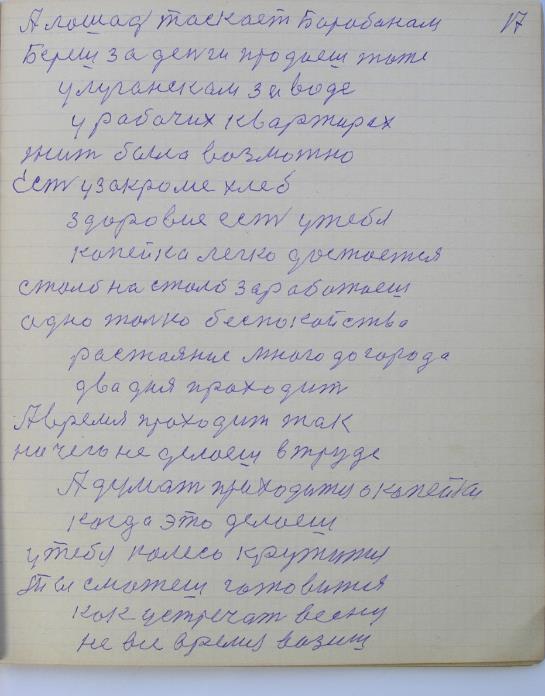 А лошад таскает Барабанам 17
Береш за денги продаеш тоже
у луганскам заводе
у рабочих квартирах
жит была возможно
Ест у закроме хлеб
здоровие ест у тебя
копейка легко достается
столб на столб заработаеш
одно толко беспокойства
растаяние много до города
два дня проходит
А время проходит так
ничего не делаеш в труде
А думат приходится о копейки
когда это делаеш
у тебя колесо кружится
Ты сможеш готовится
как устречат весну
не все время возиш